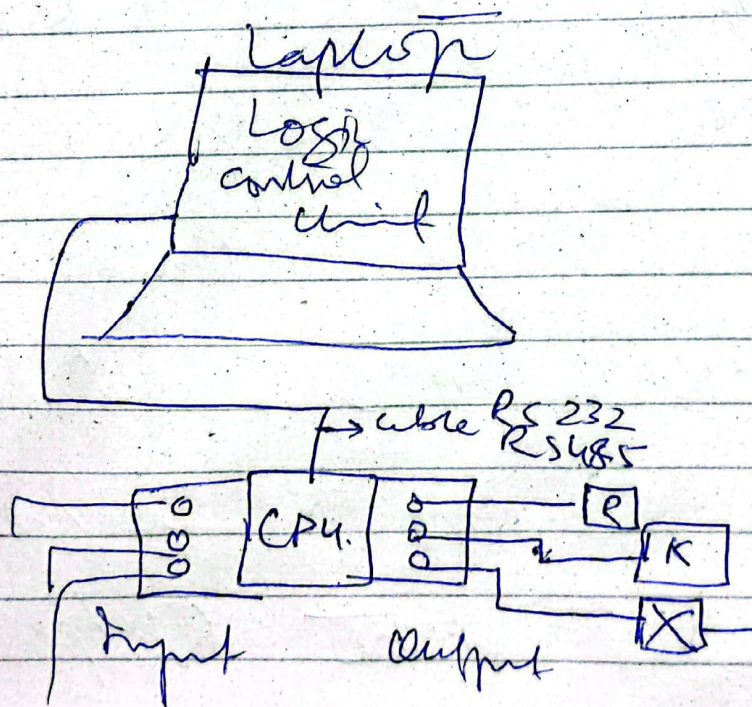 Laptop
Logic
control
Unit
cable RS 232
RS485
CPU.
R
K
X
Input
Output